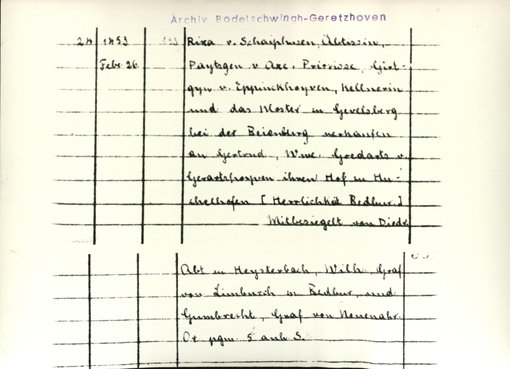 Archiv Bodelschwingh-Geretzhoven
24 1453 Rixa v. Schaiphusen, Äbtissin,
Febr 26. Paytzgen v Are, Priorisse, Giet-
gyn v. Eppinkhoyven, Kellnerin
und das Kloster in Gevelsberg
bei der Beienburg verkaufen
an Gertrud, Wwe. Goedarts v
Gerartzhoyven ihren Hof in Mu-
chelhofen [Herrlichkeit Bedbur.]
Mitbesiegelt von Diedr
Abt in Heysterbach, Wilh. Graf
von Limburch in Bedbur, und
Gumbrecht, Graf von Neuenahr
Or pgm 5 anh S.